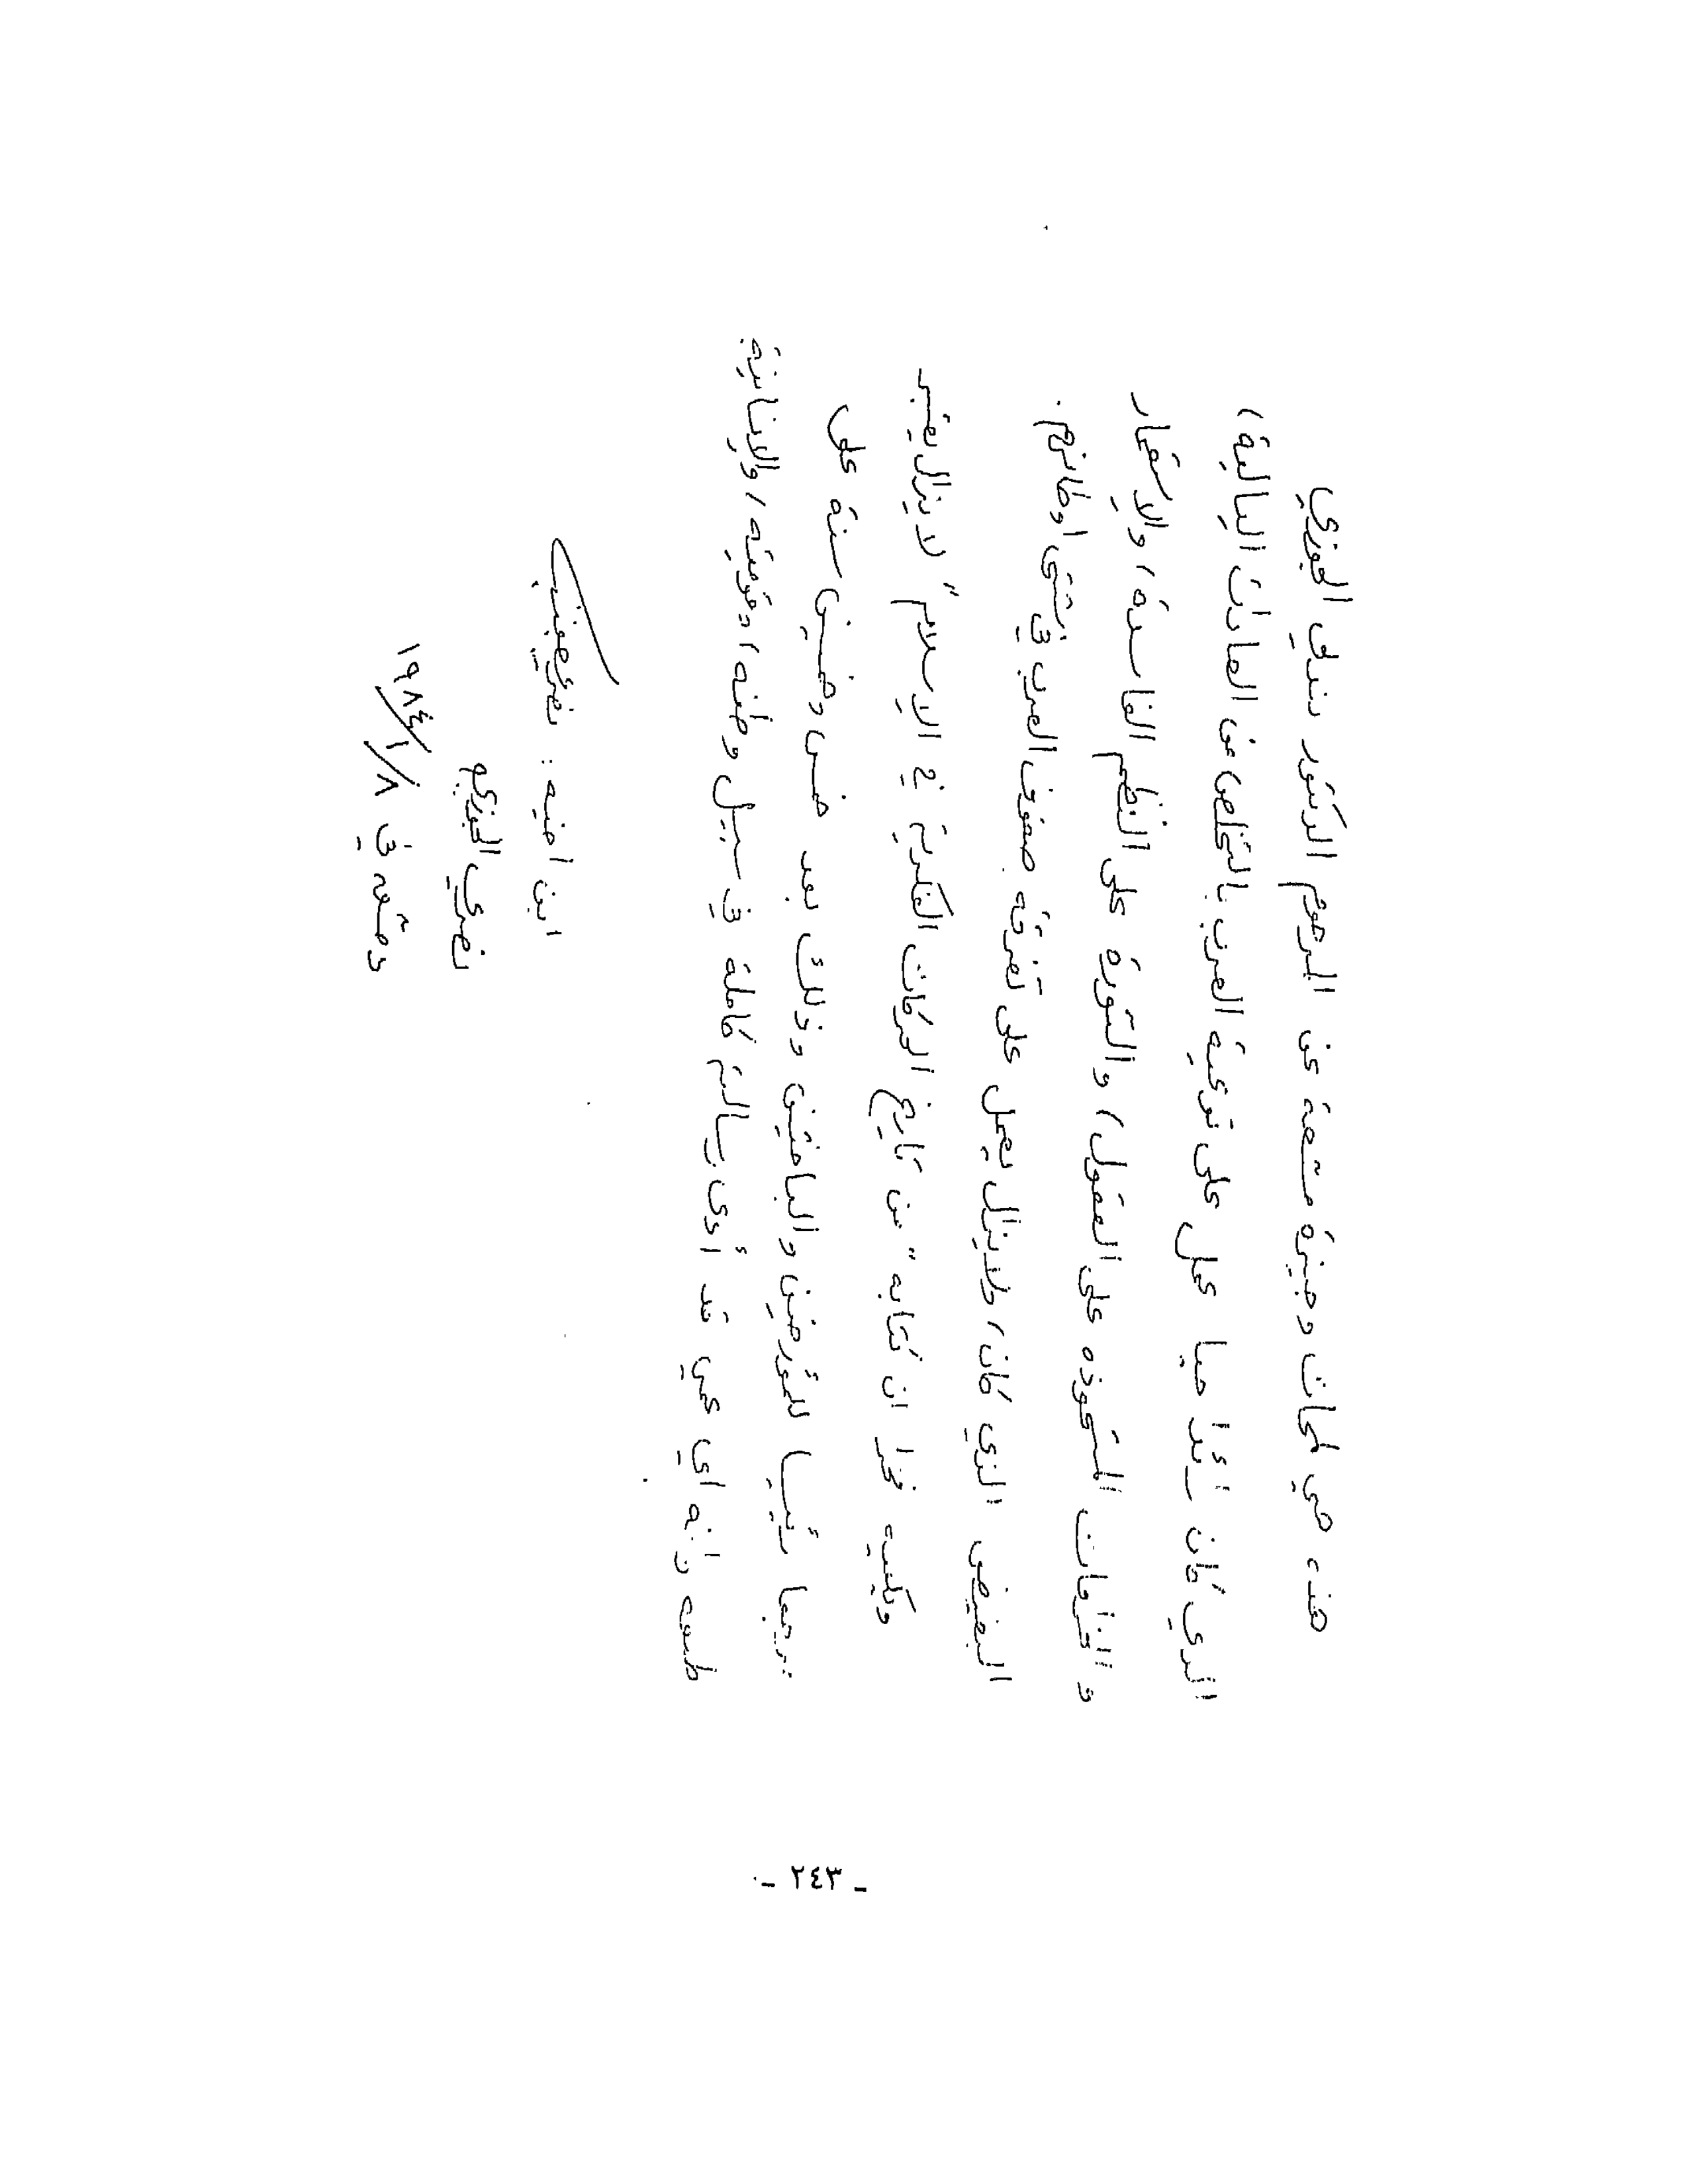 هذه هي لمحات وجيزة مشعة عن المرحوم الدكتور بندلي الجوزي
الذي كان رائدا حيا عمل على توعية العرب بالتخلص من العادات البالية،
و الخزافات المشعوذه على العقول، والثورة على النظم الفاسدة، والاستعمار
البغيض الذي كان، ولا يزال يعمل على تفرقة صفوف العرب في شتى اوطانهم.
ويكفيه فخرا ان كتابه "من تاريخ الحركات الفكرية في الاسلام" لا يزال يعتبر
مرجعا رئيسيا للمؤرخين والباحثين وذلك بعد خمس وخمسين سنة على
طبعه وانه اي عمي قد أدى رسالته كاملة في سبيل وطنه، وقوميته، والانسانية
ابن اخيه: نصري
نصري الجوزي
دمشق في ١٩٨٤/١/٨
- ٢٤٣ -